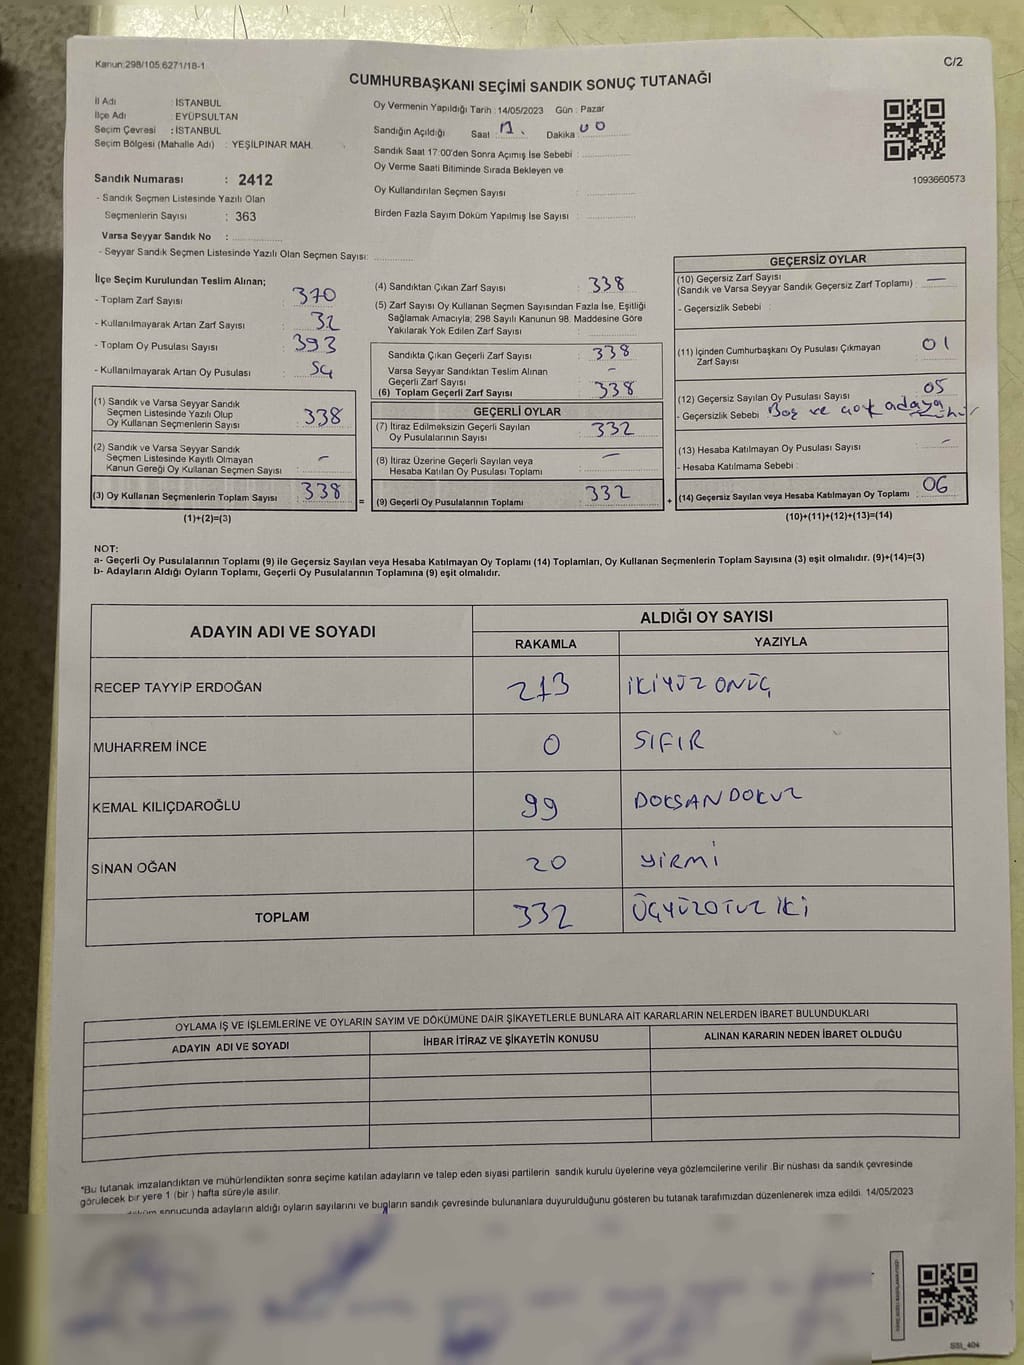 Kanun:298/105,6271/18-1
C/2
CUMHURBAŞKANI SEÇİMİ SANDIK SONUÇ TUTANAĞI
İl Adı : İSTANBUL
İlçe Adı : EYÜPSULTAN
Seçim Çevresi : İSTANBUL
Seçim Bölgesi (Mahalle Adı) : YEŞİLPINAR MAH.
Sandık Numarası : 2412
- Sandık Seçmen Listesinde Yazılı Olan
Seçmenlerin Sayısı : 363
Varsa Seyyar Sandık No :
- Seyyar Sandık Seçmen Listesinde Yazılı Olan Seçmen Sayısı:
Oy Vermenin Yapıldığı Tarih : 14/05/2023 Gün : Pazar
Sandığın Açıldığı Saat Dakika 00
Sandık Saat 17:00'den Sonra Açımış İse Sebebi :
Oy Verme Saati Bitiminde Sırada Bekleyen ve
Oy Kullandırılan Seçmen Sayısı :
Birden Fazla Sayım Döküm Yapılmış İse Sayısı :
1093660573
İlçe Seçim Kurulundan Teslim Alınan;
- Toplam Zarf Sayısı : 370
- Kullanılmayarak Artan Zarf Sayısı : 32
- Toplam Oy Pusulası Sayısı : 393
- Kullanılmayarak Artan Oy Pusulası : 54
(1) Sandık ve Varsa Seyyar Sandık
Seçmen Listesinde Yazılı Olup
Oy Kullanan Seçmenlerin Sayısı : 338
(2) Sandık ve Varsa Seyyar Sandık
Seçmen Listesinde Kayıtlı Olmayan
Kanun Gereği Oy Kullanan Seçmen Sayısı : -
(3) Oy Kullanan Seçmenlerin Toplam Sayısı : 338
(1)+(2)=(3)
=
(4) Sandıktan Çıkan Zarf Sayısı : 338
(5) Zarf Sayısı Oy Kullanan Seçmen Sayısından Fazla İse, Eşitliği
Sağlamak Amacıyla; 298 Sayılı Kanunun 98. Maddesine Göre
Yakılarak Yok Edilen Zarf Sayısı :
Sandıkta Çıkan Geçerli Zarf Sayısı : 338
Varsa Seyyar Sandıktan Teslim Alınan
Geçerli Zarf Sayısı : -
(6) Toplam Geçerli Zarf Sayısı : 338
GEÇERLİ OYLAR
(7) İtiraz Edilmeksizin Geçerli Sayılan
Oy Pusulalarının Sayısı : 332
(8) İtiraz Üzerine Geçerli Sayılan veya
Hesaba Katılan Oy Pusulası Toplamı : -
(9) Geçerli Oy Pusulalarının Toplamı : 332
+
GEÇERSİZ OYLAR
(10) Geçersiz Zarf Sayısı
(Sandık ve Varsa Seyyar Sandık Geçersiz Zarf Toplamı) : -
- Geçersizlik Sebebi :
(11) İçinden Cumhurbaşkanı Oy Pusulası Çıkmayan
Zarf Sayısı : 01
(12) Geçersiz Sayılan Oy Pusulası Sayısı : 05
- Geçersizlik Sebebi Boş ve çok adaya
(13) Hesaba Katılmayan Oy Pusulası Sayısı : -
- Hesaba Katılmama Sebebi :
(14) Geçersiz Sayılan veya Hesaba Katılmayan Oy Toplamı : 06
(10)+(11)+(12)+(13)=(14)
NOT:
a- Geçerli Oy Pusulalarının Toplamı (9) ile Geçersiz Sayılan veya Hesaba Katılmayan Oy Toplamı (14) Toplamları, Oy Kullanan Seçmenlerin Toplam Sayısına (3) eşit olmalıdır. (9)+(14)=(3)
b- Adayların Aldığı Oyların Toplamı, Geçerli Oy Pusulalarının Toplamına (9) eşit olmalıdır.
ADAYIN ADI VE SOYADI
ALDIĞI OY SAYISI
RAKAMLA YAZIYLA
RECEP TAYYİP ERDOĞAN 213 İKİYÜZ ONÜÇ
MUHARREM İNCE 0 SIFIR
KEMAL KILIÇDAROĞLU 99 DOKSAN DOKUZ
SİNAN OĞAN 20 YİRMİ
TOPLAM 332 ÜÇYÜZOTUZ İKİ
OYLAMA İŞ VE İŞLEMLERİNE VE OYLARIN SAYIM VE DÖKÜMÜNE DAİR ŞİKAYETLERLE BUNLARA AİT KARARLARIN NELERDEN İBARET BULUNDUKLARI
ADAYIN ADI VE SOYADI İHBAR İTİRAZ VE ŞİKAYETİN KONUSU ALINAN KARARIN NEDEN İBARET OLDUĞU
*Bu tutanak imzalandıktan ve mühürlendikten sonra seçime katılan adayların ve talep eden siyasi partilerin sandık kurulu üyelerine veya gözlemcilerine verilir .Bir nüshası da sandık çevresinde
görülecek bir yere 1 (bir ) hafta süreyle asılır.
sonucunda adayların aldığı oyların sayılarını ve bunların sandık çevresinde bulunanlara duyurulduğunu gösteren bu tutanak tarafımızdan düzenlenerek imza edildi. 14/05/2023
SSI_404